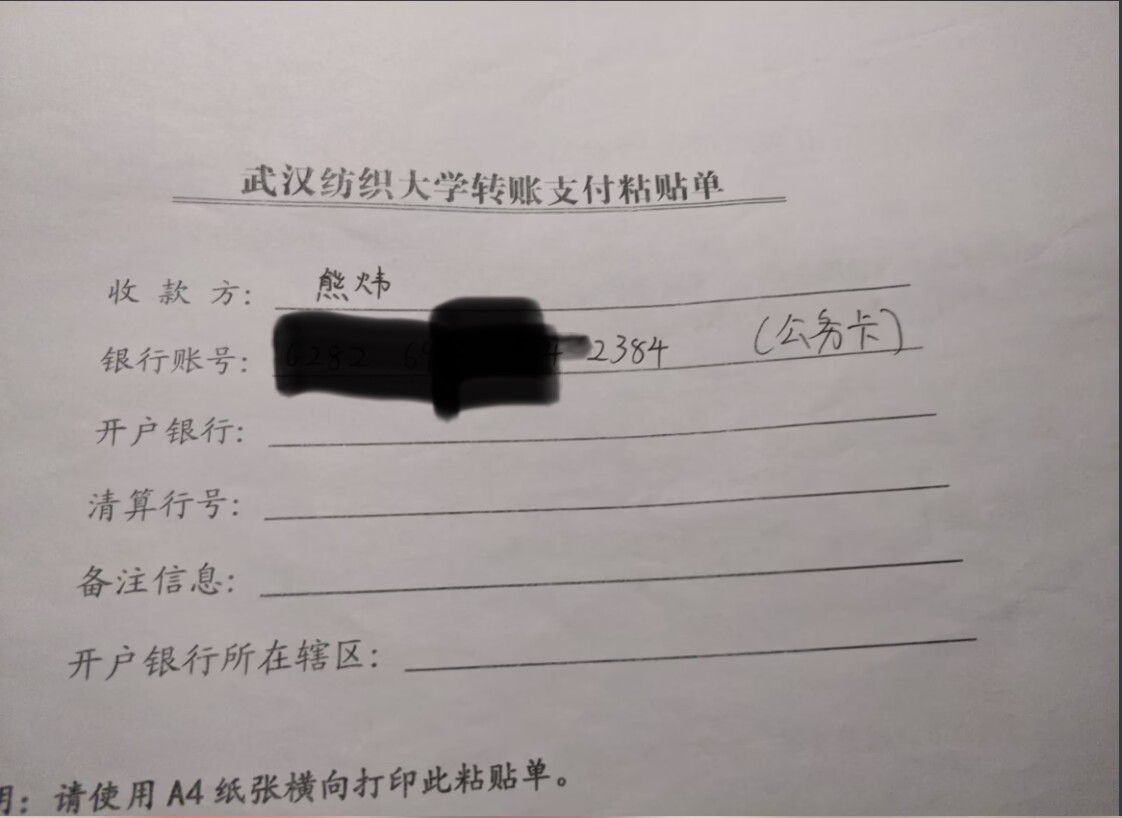 武汉纺织大学转账支付粘贴单
收款方: 熊炜
银行账号: 2384 (公务卡)
开户银行:
清算行号:
备注信息:
开户银行所在辖区:
明: 请使用A4纸张横向打印此粘贴单。